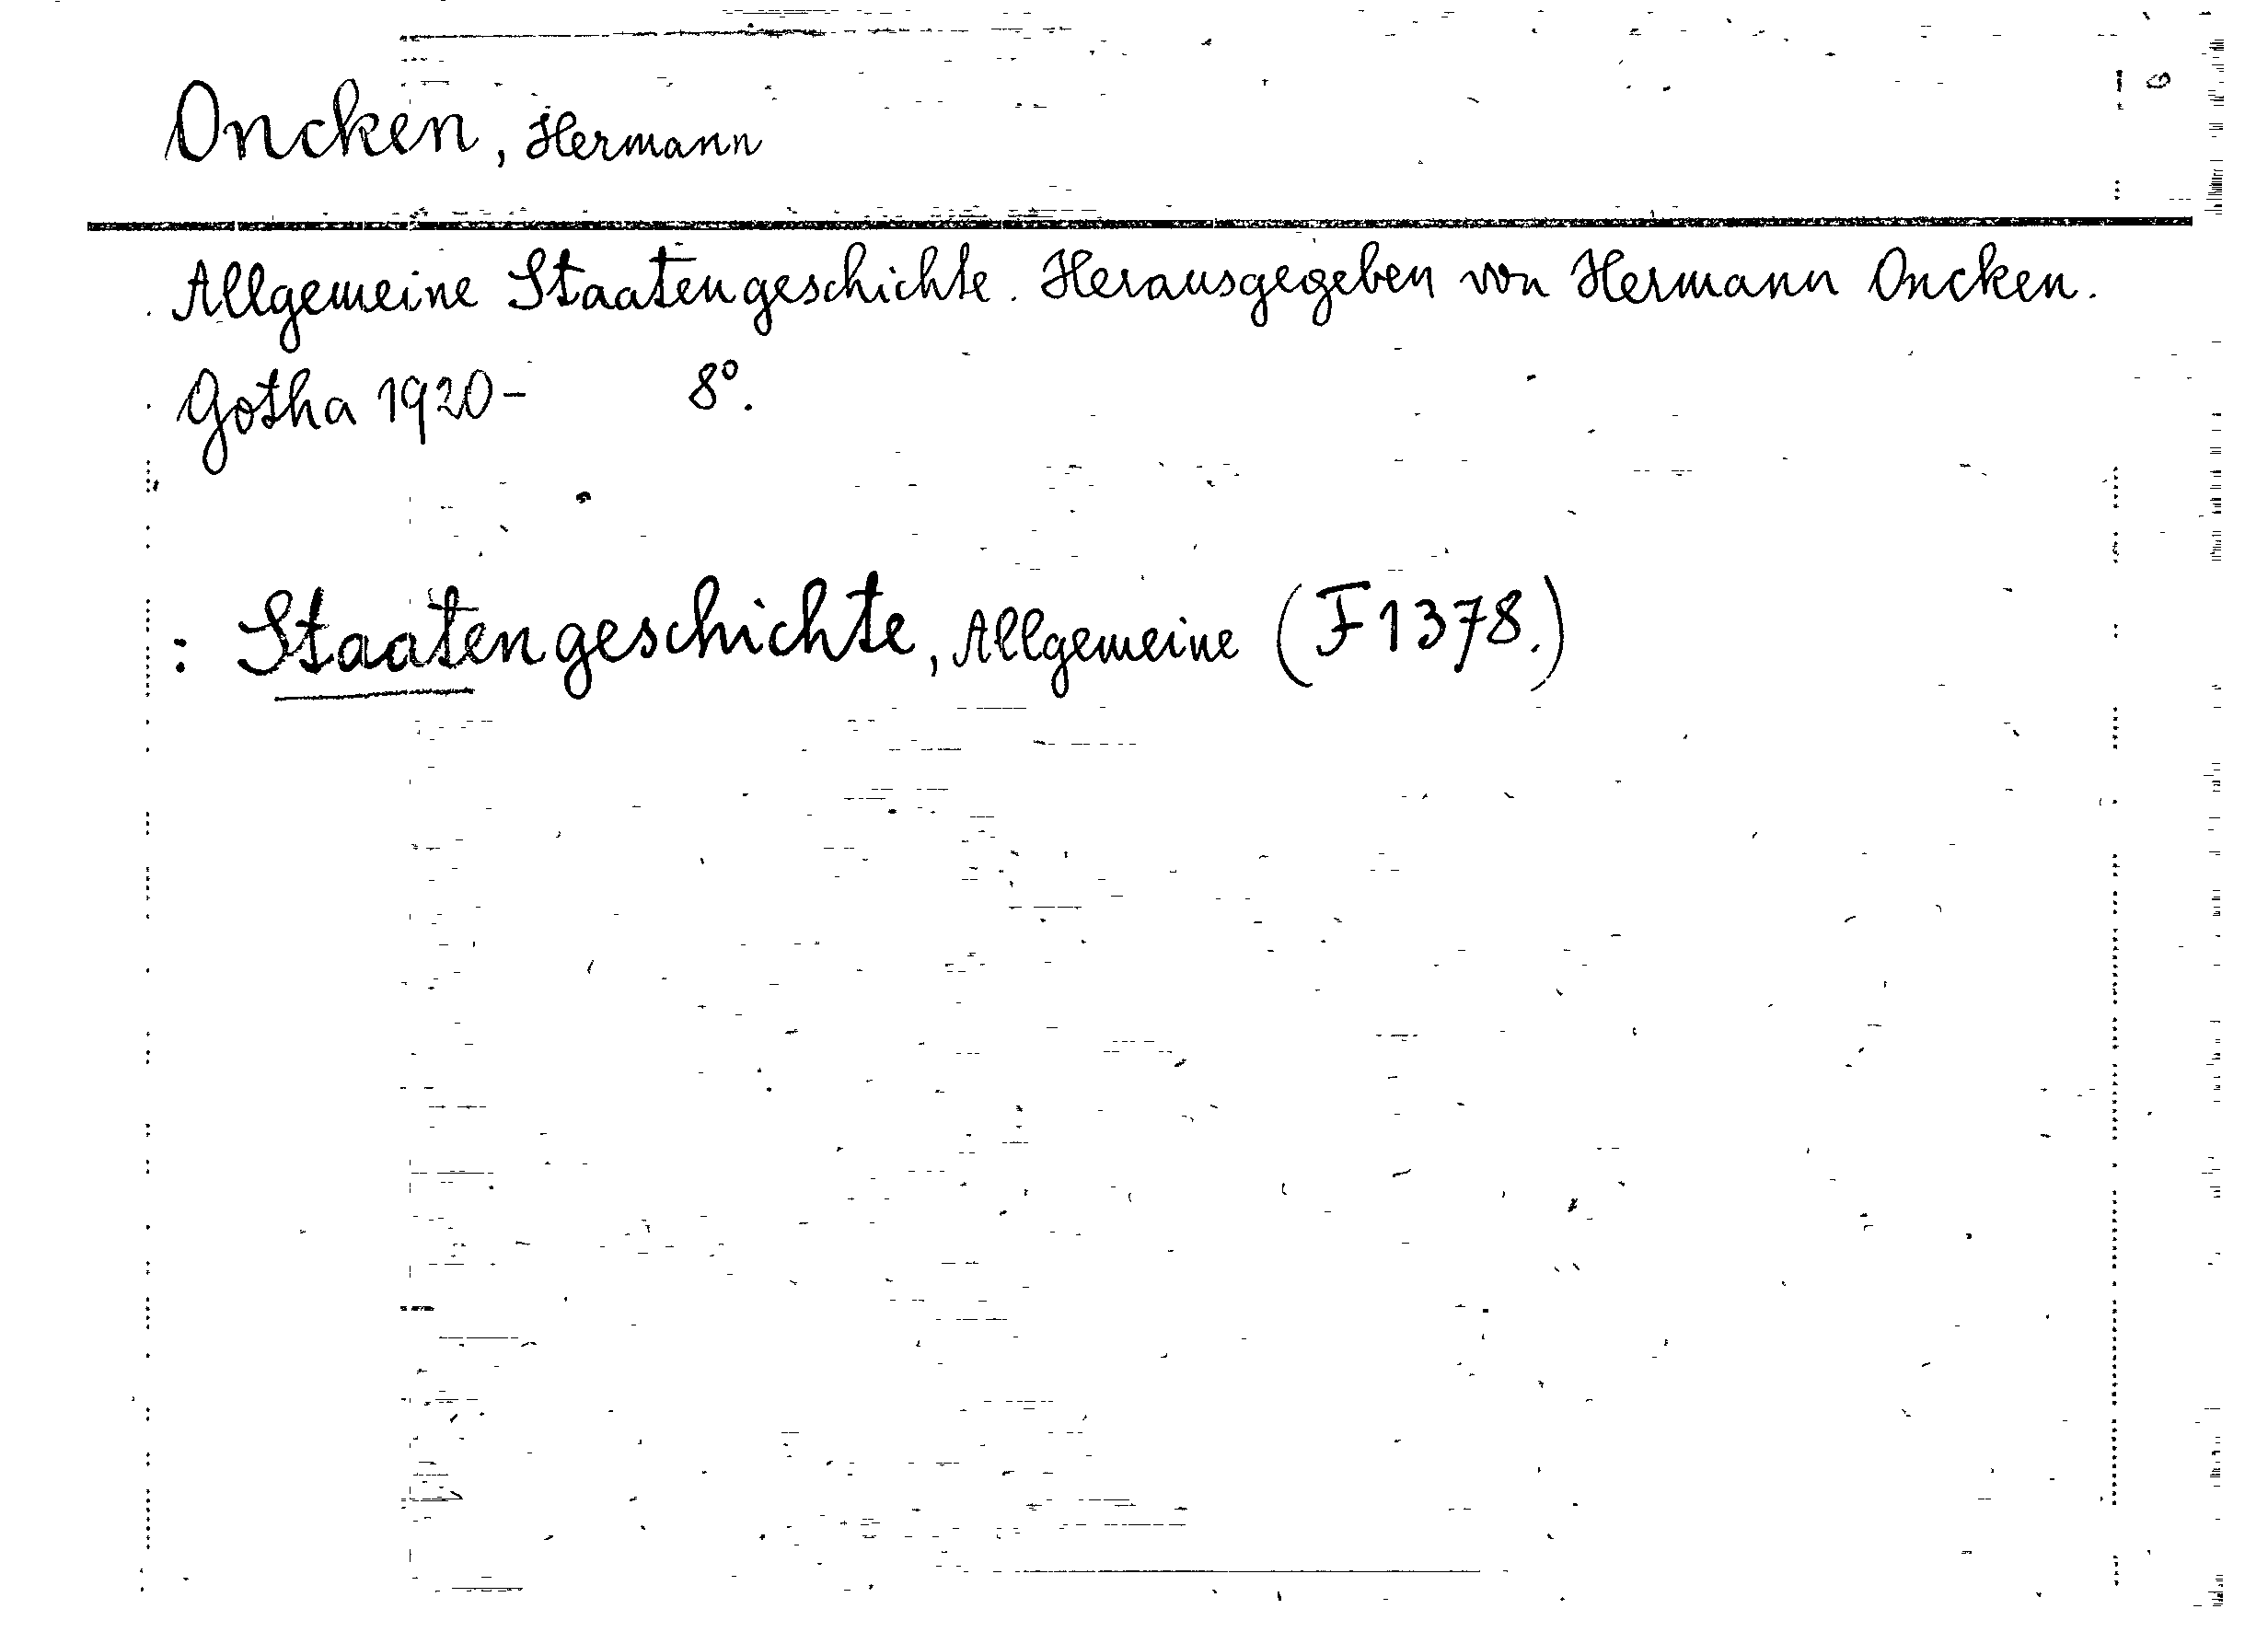 Oncken, Hermann
Allgemeine Staatengeschichte. Herausgegeben von Hermann Oncken.
Gotha 1920- 8°.
: Staatengeschichte, Allgemeine (F 1378.)